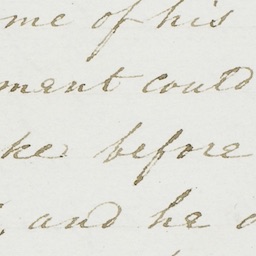 me of his
ment could
ke before
, and he